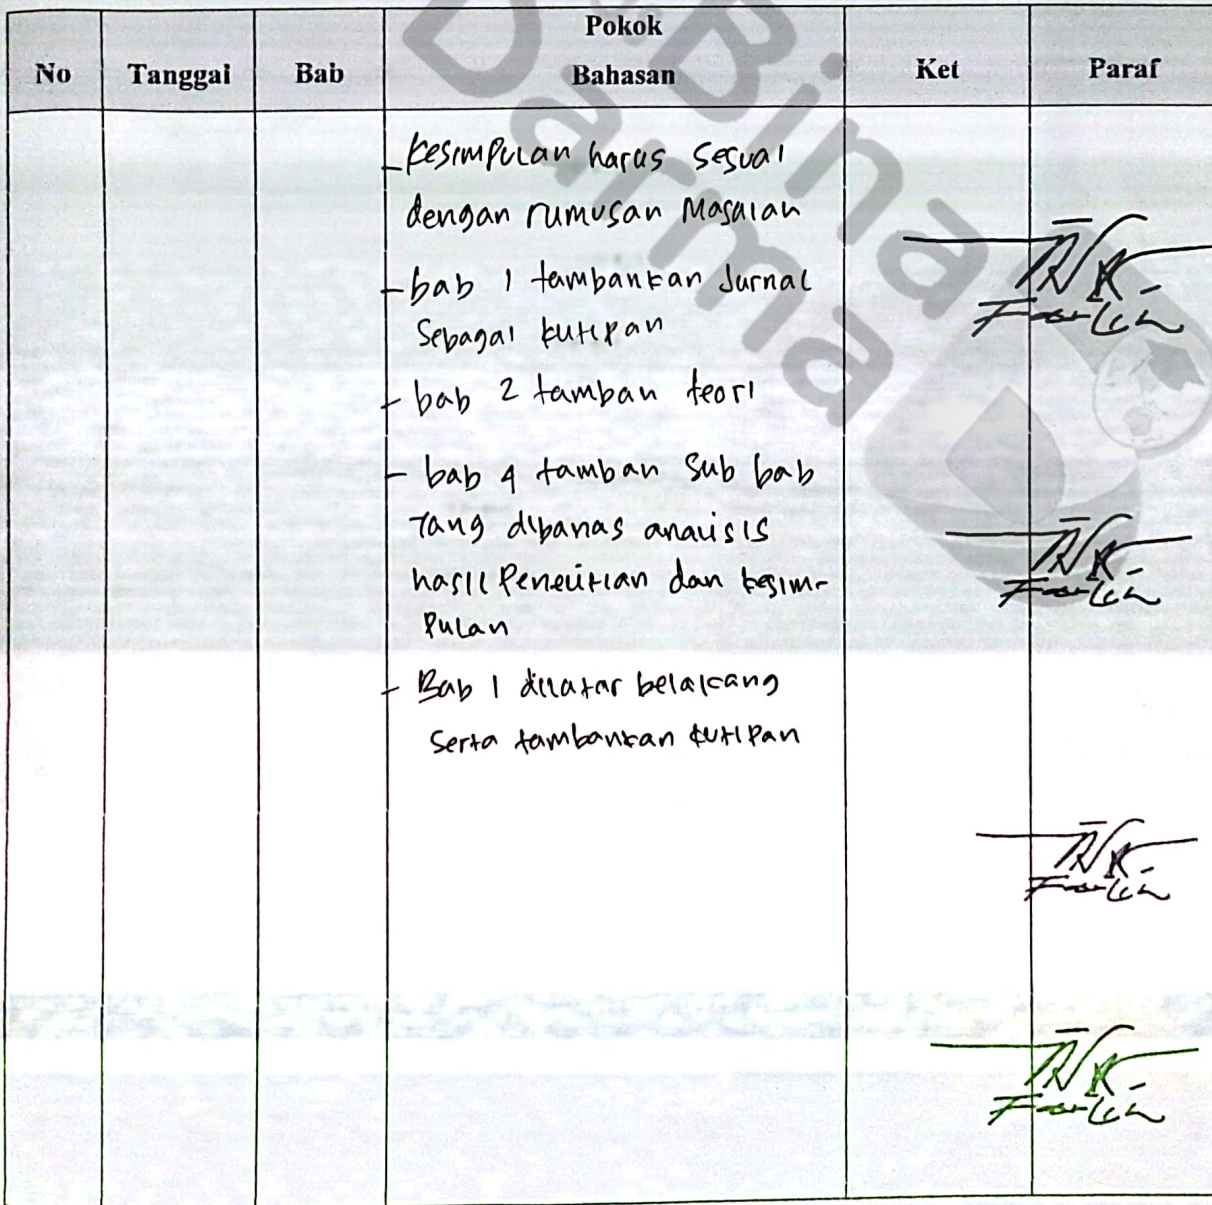 No Tanggal Bab Pokok Bahasan Ket Paraf
- Kesimpulan harus sesuai
dengan rumusan Masalah
- bab 1 tambahkan Jurnal
Sebagai kutipan
- bab 2 tambah teori
- bab 4 tambah Sub bab
Yang dibahas analisis
hasil Penelitian dan kesim-
Pulan
- Bab 1 dilatar belakang
Serta tambahkan kutipan
Bina
Darma